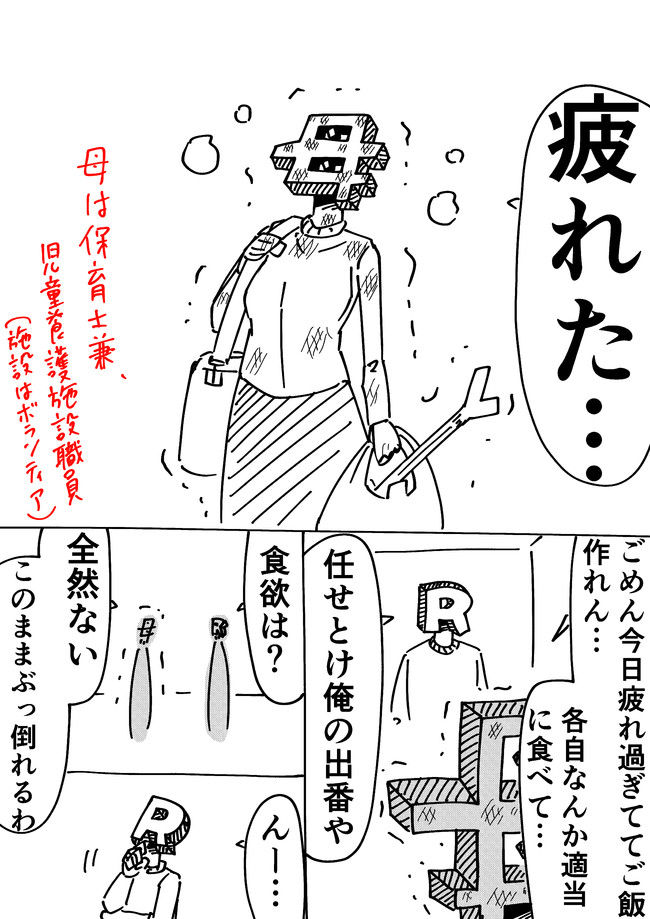 疲れた…
母
母は保育士兼、
児童養護施設職員
(施設はボランティア)
ごめん今日疲れ過ぎててご飯
作れん…
各自なんか適当
に食べて…
R
母
任せとけ俺の出番や
食欲は?
R
母
全然ない
このままぶっ倒れるわ
んー…
R